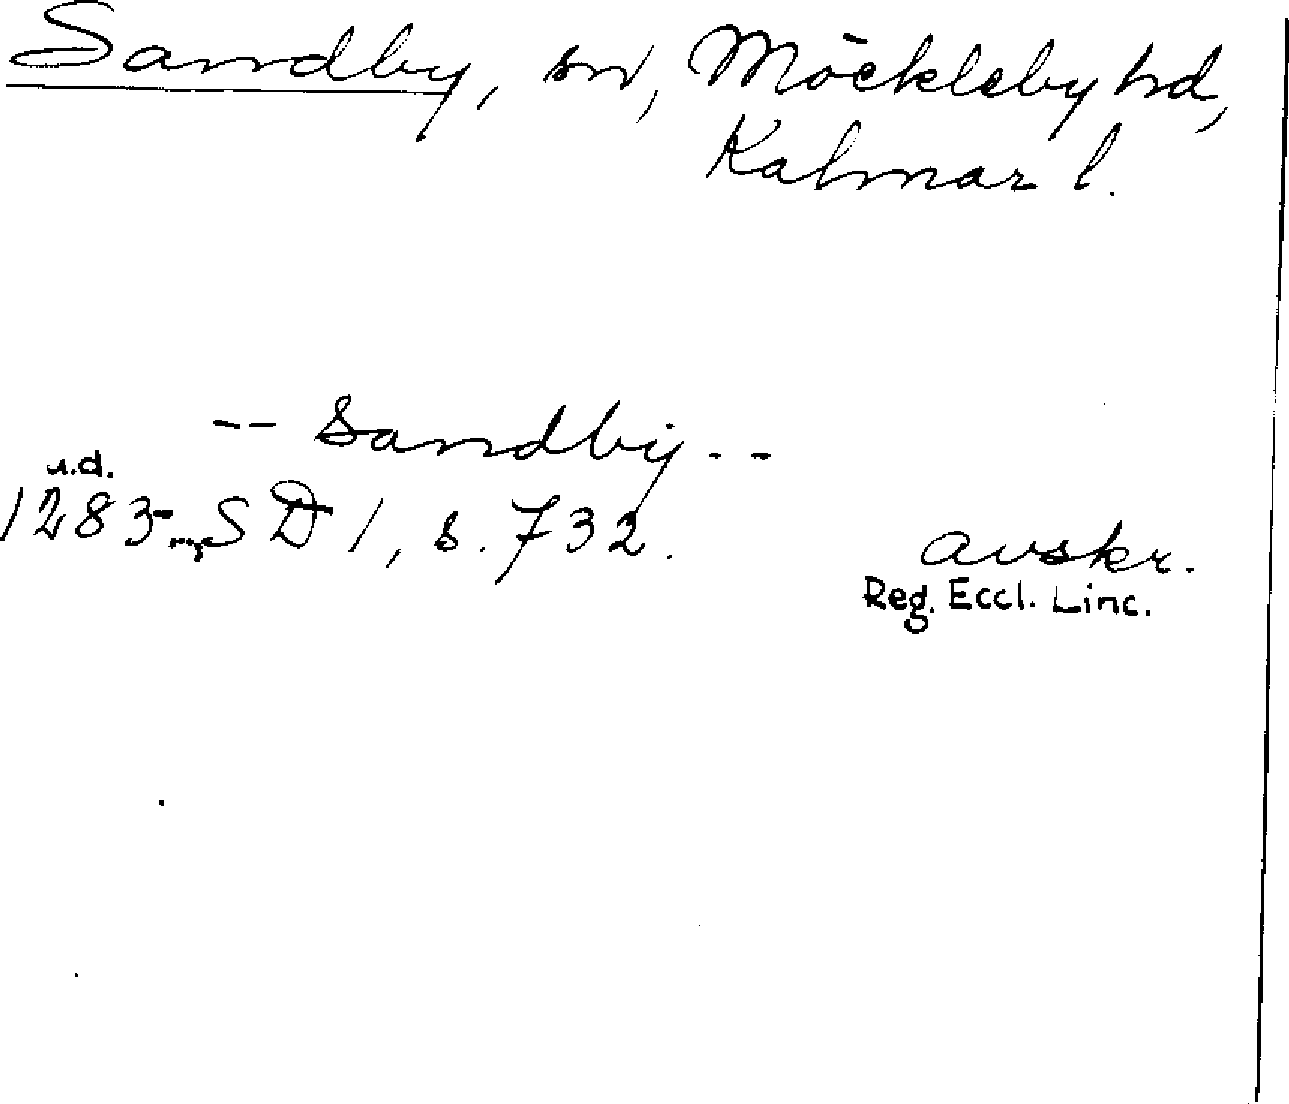 Sandby, sn, Möckleby hd,
Kalmar l.
-- Sandby --
u.d.
1283 SD 1, s. 732.
avskr.
Reg. Eccl. Linc.